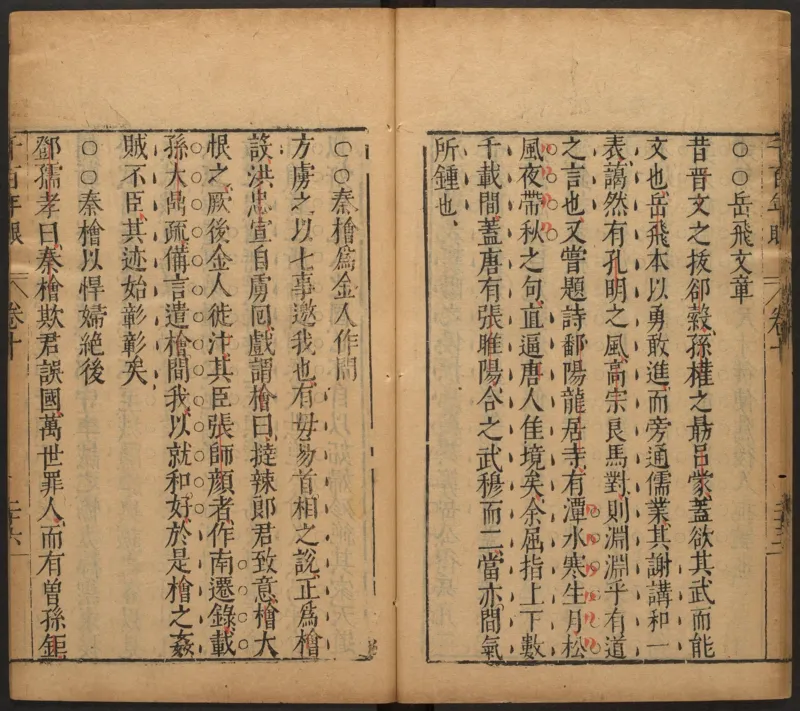 ○○岳飛文章
昔晋文之拔郤縠孫權之勗吕蒙蓋欲其武而能
文也岳飛本以勇敢進而旁通儒業其謝講和一
表藹然有孔明之風高宗良馬對則淵淵乎有道
之言也又嘗題詩鄱陽龍居寺有潭水寒生月松
風夜帶秋之句直逼唐人佳境矣余屈指上下數
千載間蓋唐有張睢陽合之武穆而二當亦間氣
所鍾也
○○秦檜爲金人作間
方虜之以七事邀我也有毋易首相之說正爲檜
設洪忠宣自虜回戲謂檜曰撻辣郎君致意檜大
恨之厥後金人徙汴其臣張師顔者作南遷錄載
孫大鼎疏備言遣檜間我以就和好於是檜之姦
賊不臣其迹始彰彰矣
○○秦檜以悍婦絶後
鄧孺孝曰秦檜欺君誤國萬世罪人而有曽孫鉅
千百年眼
卷十